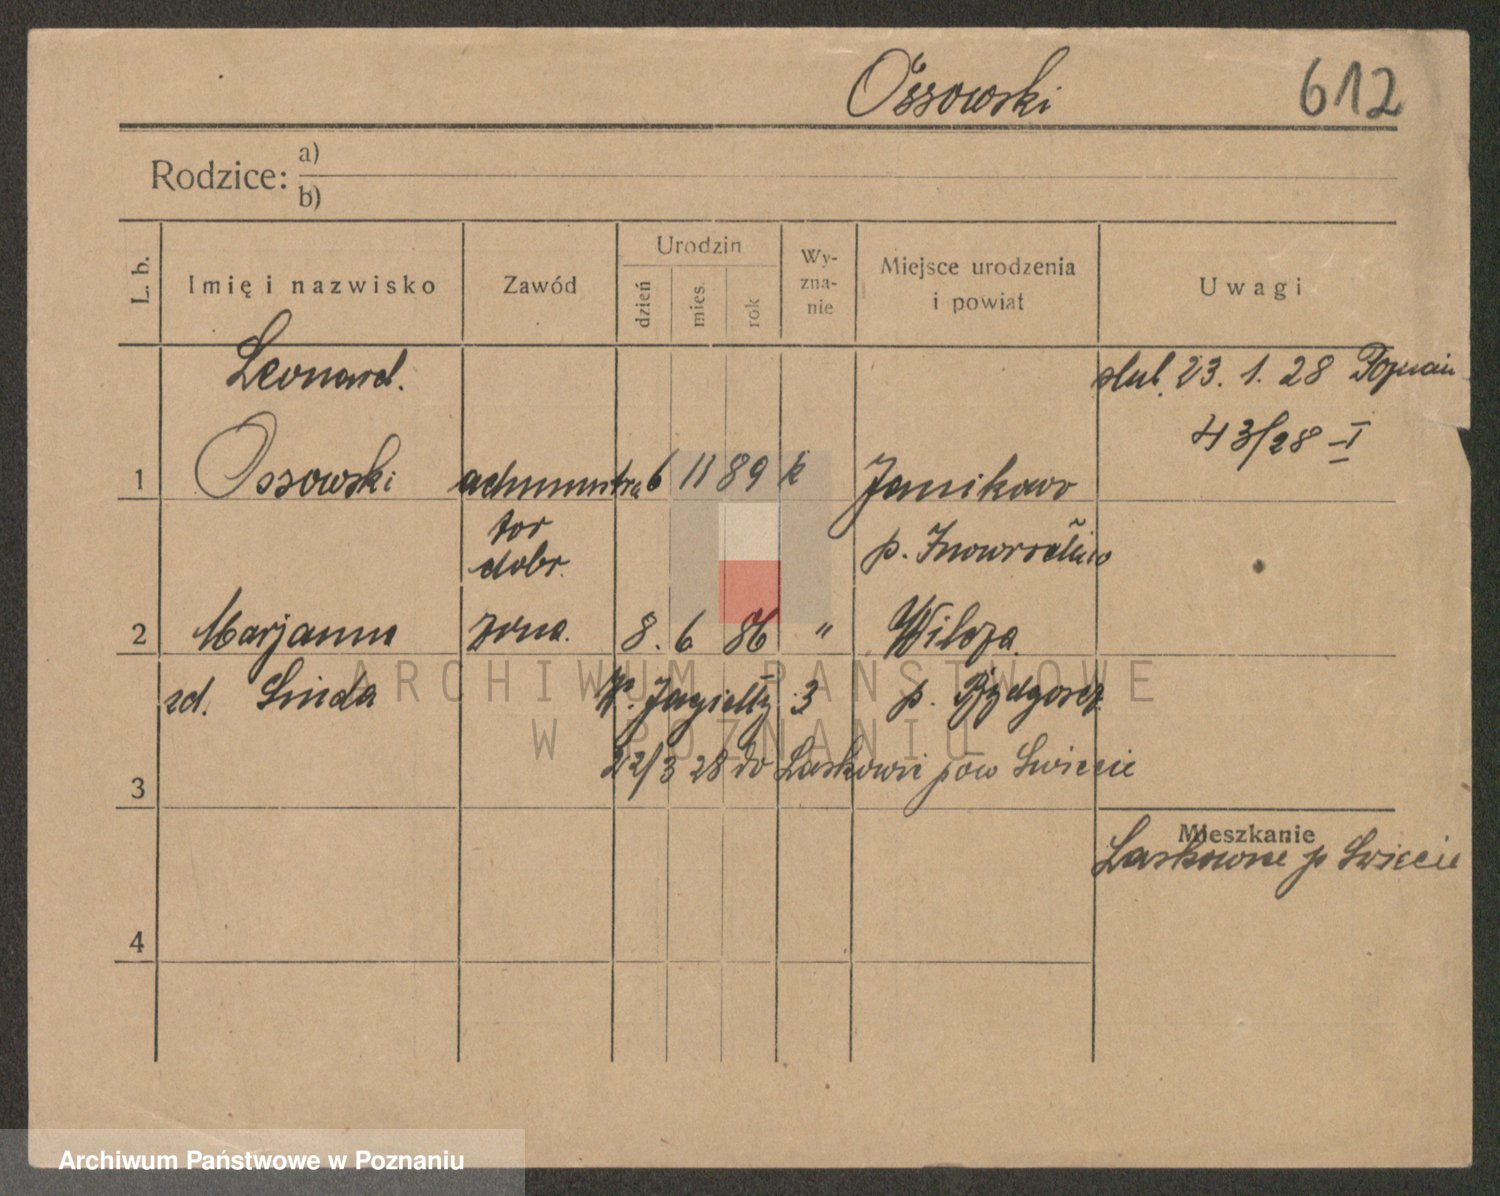 Ossowski 612
Rodzice: a)
b)
L. b. Imię i nazwisko Zawód Urodzin dzień mies. rok Wy-zna-nie Miejsce urodzenia i powiat Uwagi
Leonard. ślub. 23. 1. 28 Poznań
43/28 I
1 Ossowski administra 6 11 89 k Janikowo
tor p. Inowrocław
dobr.
2 Marjanna żona. 8. 6 86 " Wilcza.
zd. Smda W. Jagiełły 3 p. Bydgoszcz
22/3 28 do Laskowic pow Świecie
3
Mieszkanie
Laskowice p Świecie
4
ARCHIWUM PAŃSTWOWE
W POZNANIU
Archiwum Państwowe w Poznaniu